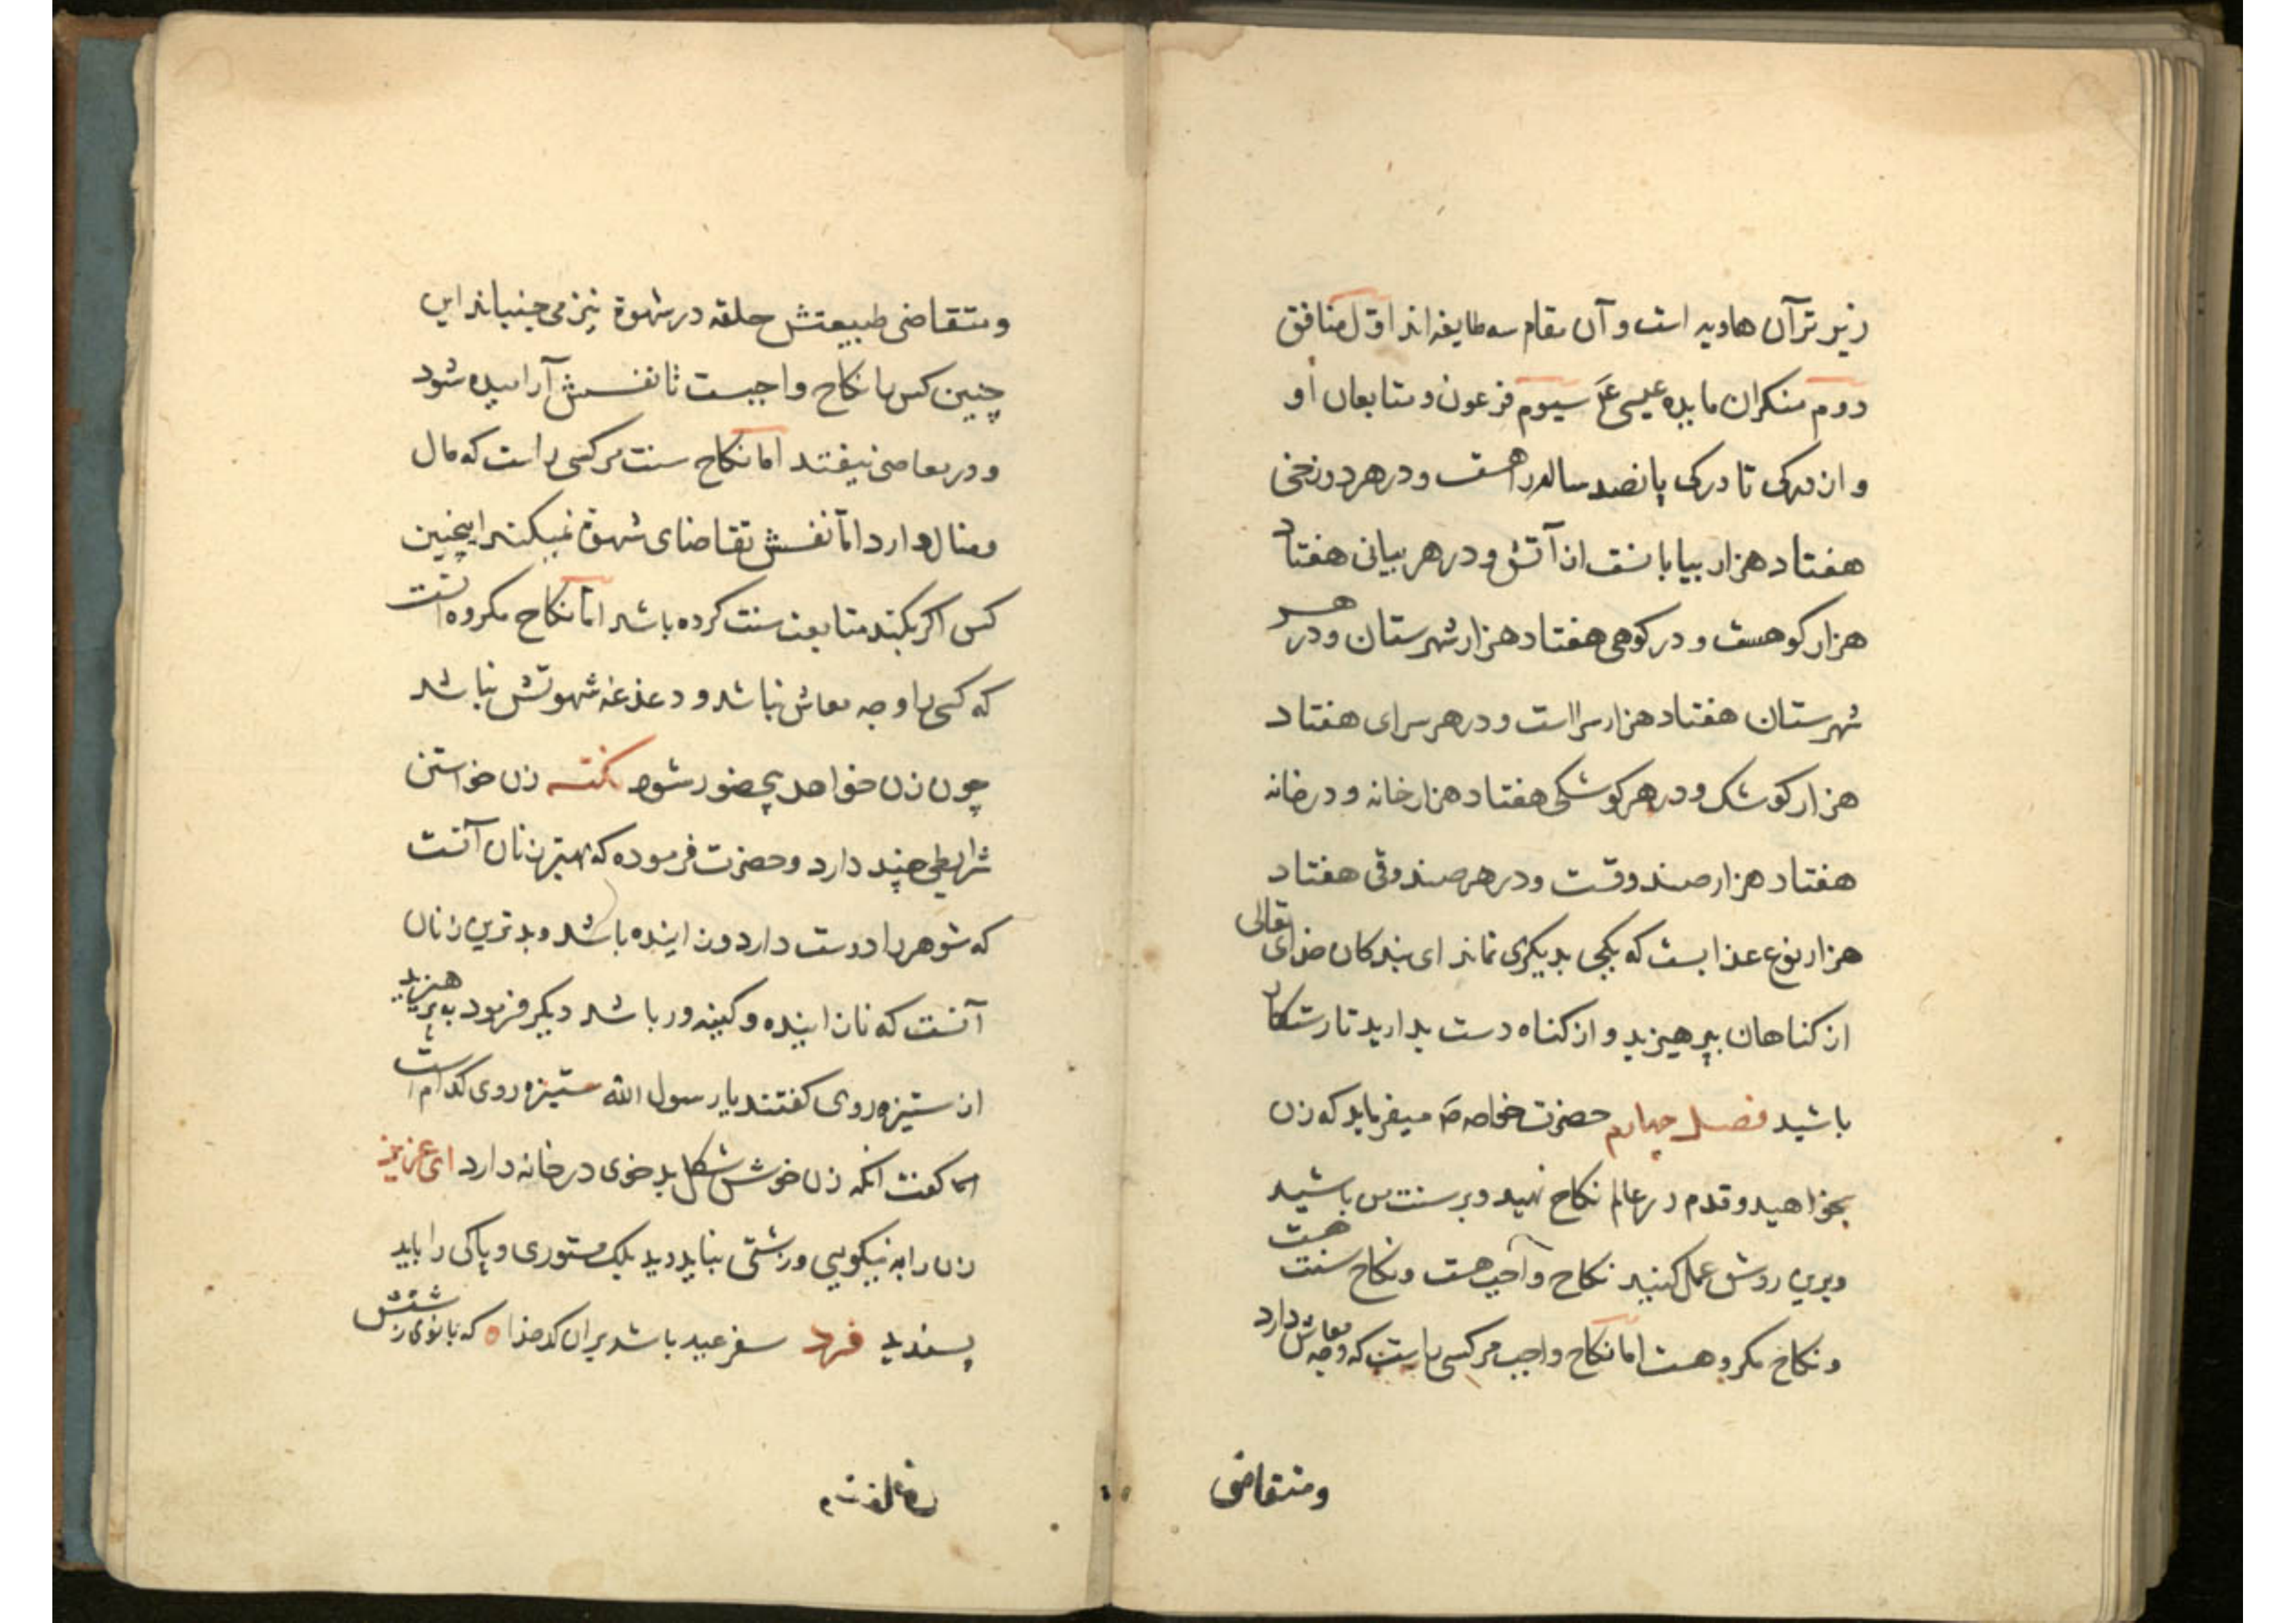 زیر تر آن هاویه است و آن مقام سه طایفه اند اوّل منافق
دوم منکران مایده عیسی ع سیوم فرعون و متابعان او
و از درکی تا درکی پانصد ساله راهست و در هر دوزخی
هفتاد هزار بیابانست از آتش و در هر بیابانی هفتاد
هزار کوهست و در کوهی هفتاد هزار شهرستان و در هر
شهرستان هفتاد هزار سرااست و در هر سرای هفتاد
هزار کوشک و در هر کوشکی هفتاد هزار خانه و در خانه
هفتاد هزار صندوقست و در هر صندوقی هفتاد
هزار نوع عذابست که یکی بدیکری نماند ای بندکان خدای تعالی
از کناهان بپرهیزید و از کناه دست بدارید تا رستکار
باشید فصل چهارم حضرت میفرماید که زن
بخواهید و قدم در عالم نکاح نهید و بر سنت من باشید
و برین روش عمل کنید نکاح واجب هست و نکاح سنت هست
و نکاح مکروهست اما نکاح واجب مر کسی راست که وجه معاش دارد
و متقاضی
و متقاضی طبیعتش حلقه در شهوة نیز می جنباند این
چنین کس را نکاح واجبست تا نفسش آرامیده شود
و در معاصی نیفتد اما نکاح سنت مر کسی راست که مال
و منال دارد امّا نفسش تقاضای شهوة نمیکند اینچنین
کس اکر بکند متابعت سنت کرده باشد امّا نکاح مکروه انست
که کسی را وجه معاش نباشد و دغدغه شهوتش نباشد
چون زن خواهد بیحضور شود نکته زن خواستن
شرایطی چند دارد و حضرت فرموده که بهترین زنان آنست
که شوهر را دوست دارد و زاینده باشد و بدترین زنان
آنست که نازاینده و کینه ور باشد دیکر فرمود بپرهیزید
از ستیزه روی کفتند یا رسول الله ستیزه روی کدام است
کفت انکه زن خوش شکل بد خوی در خانه دارد ای عزیز
زن را به نیکویی و زشتی نباید دید بلک مستوری و پاکی را باید
پسندید فرد سفر عید باشد بران کدخدا که بانوی زشتش